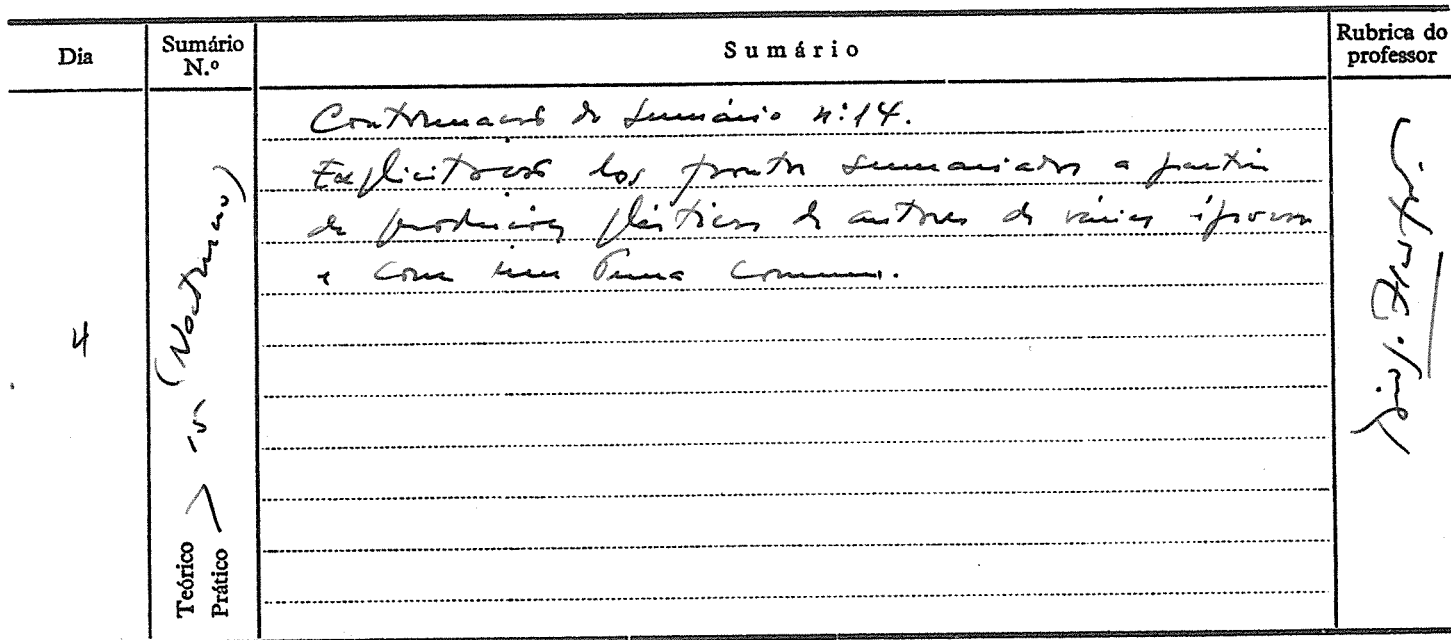 Dia
Sumário N.º
Sumário
Rubrica do professor
4
Teórico
Prático
15 (Nocturno)
Continuação do sumário nº 14.
Explicitação dos pontos sumariados a partir
de produções plásticas de autores de várias épocas
e com um tema comum.